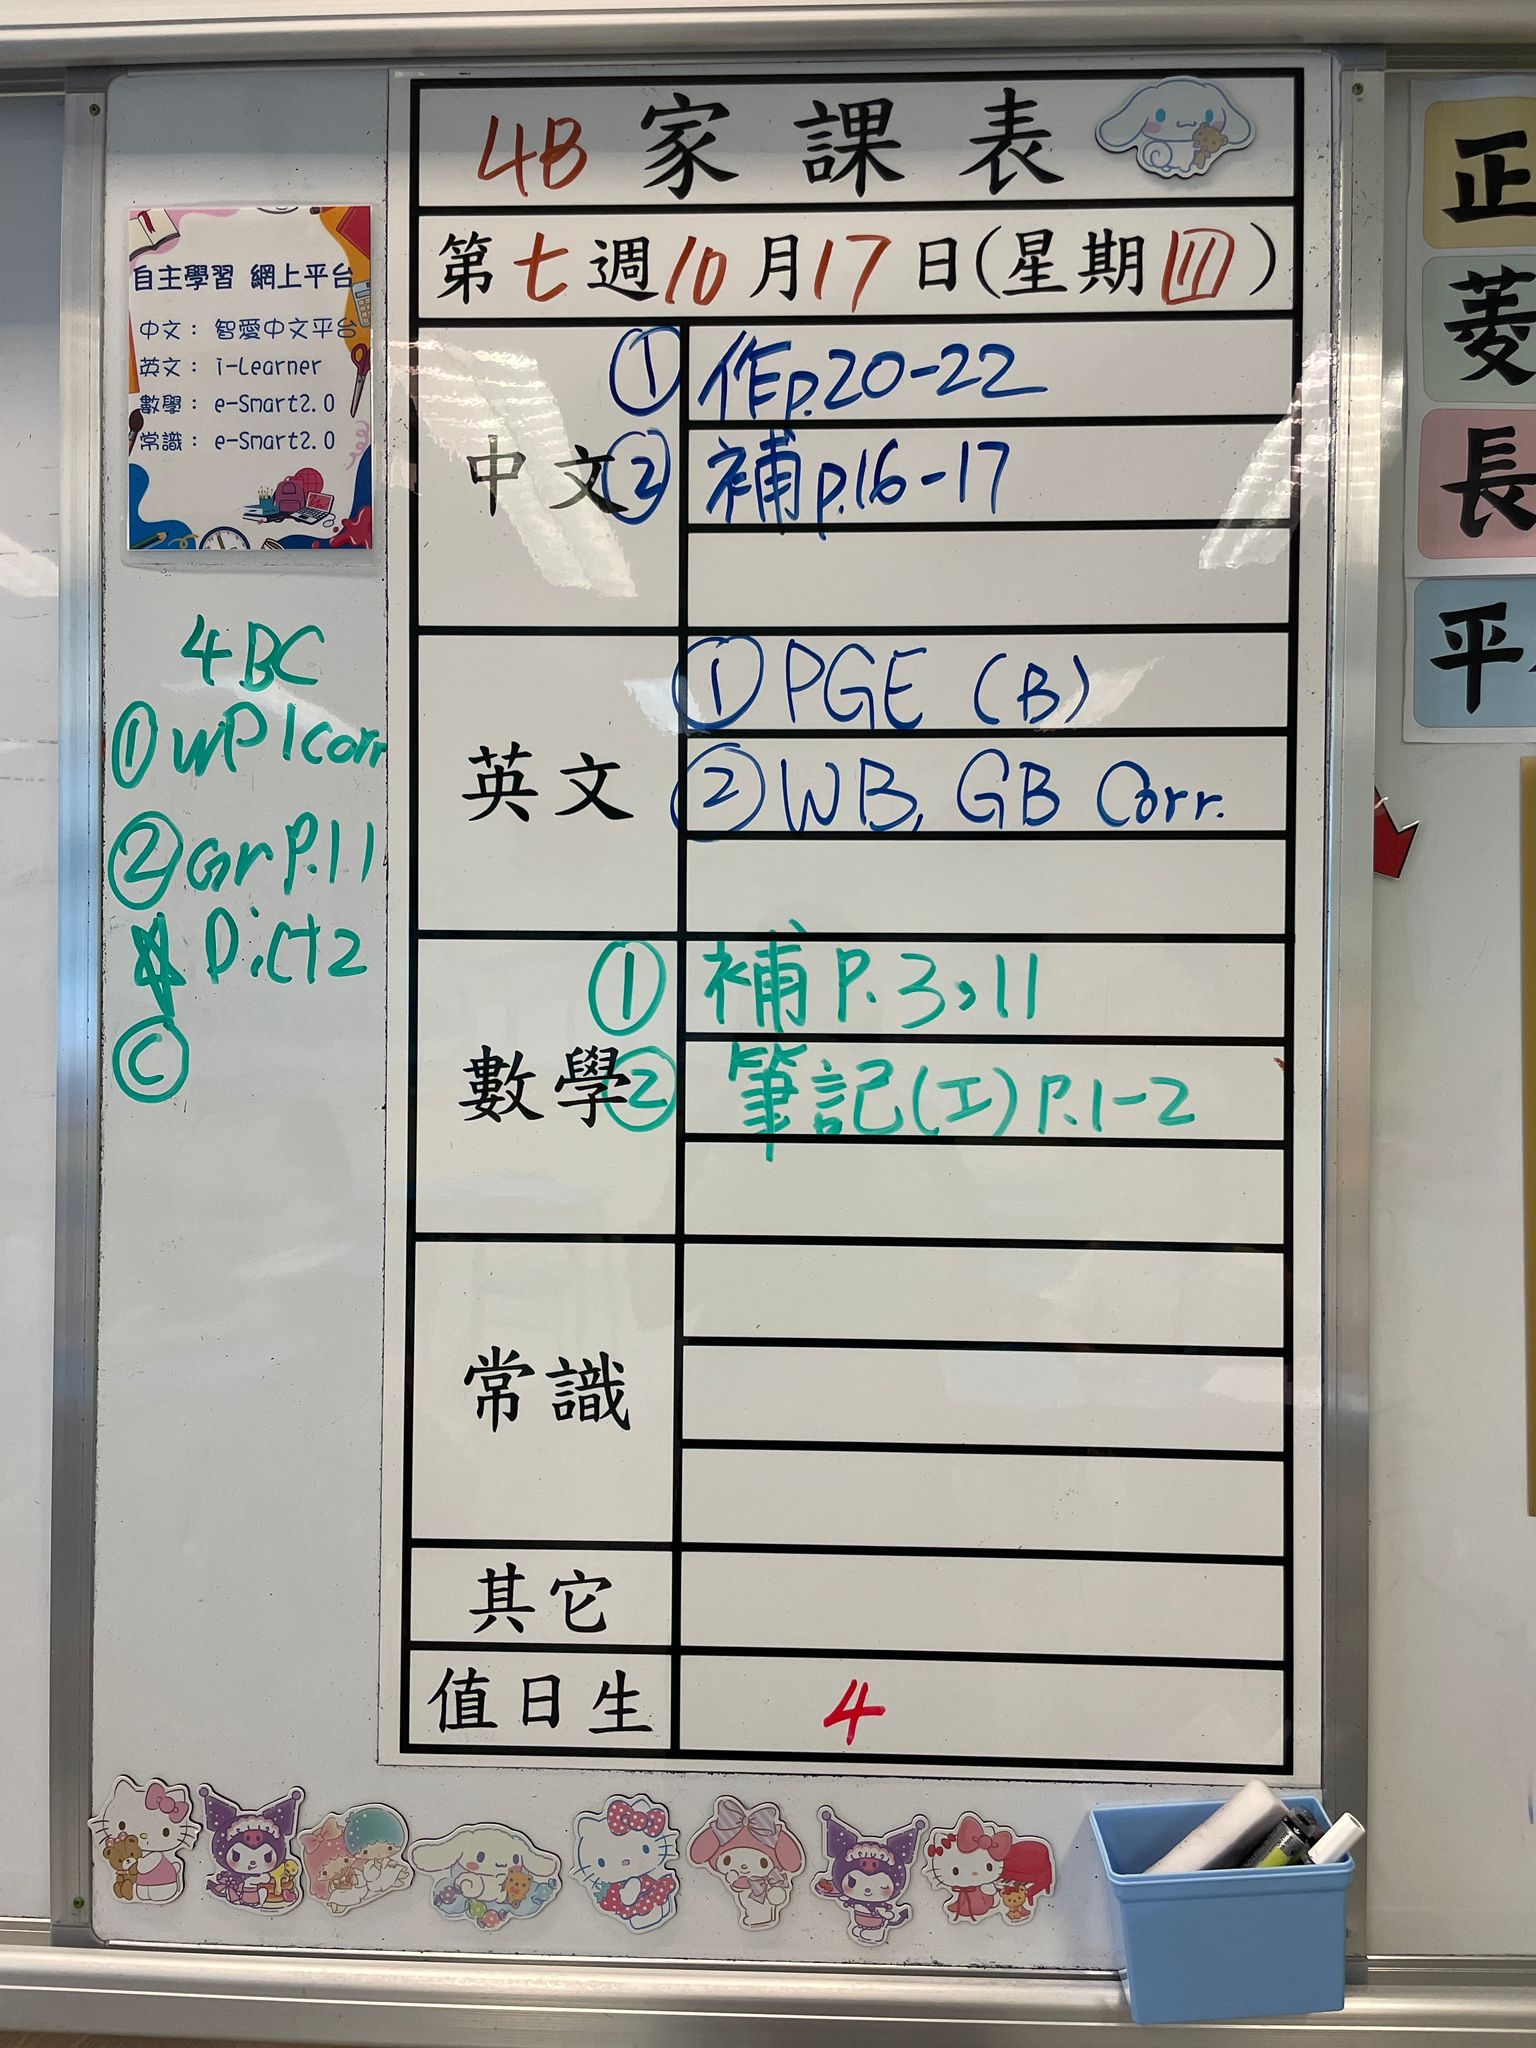 4B 家課表
第七週10月17日(星期四)
自主學習 網上平台
中文： 智愛中文平台
英文： i-Learner
數學： e-Smart2.0
常識： e-Smart2.0
4BC
① WP1 corr
② Gr P.11
☆ Dict 2
Ⓒ
中文
① 作p.20-22
② 補p.16-17
英文
① PGE (B)
② WB, GB Corr.
數學
① 補 P.3,11
② 筆記(工) P.1-2
常識
其它
值日生 4
正
菱
長
平